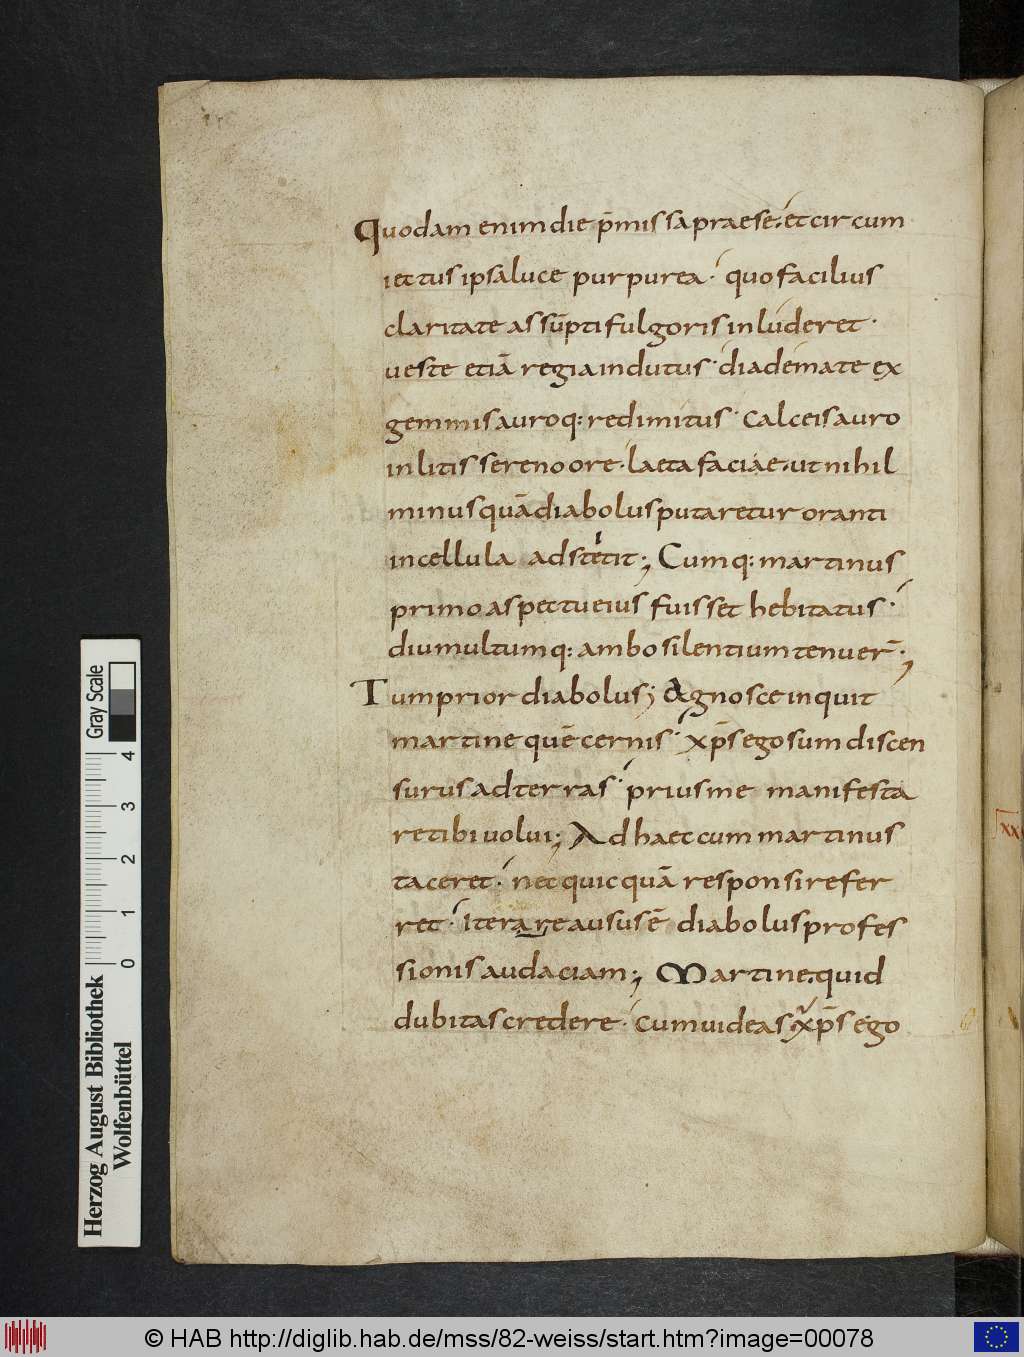 Quodam enim die p̄missa praese. et circum
iectus ipsa luce purpurea. quo facilius
claritate assūpti fulgoris inluderet.
ueste etiā regia indutus. diademate ex
gemmis auroq: redimitus. calceis auro
inlitis sereno ore. laeta faciae. ut nihil
minus quā diabolus putaretur oranti
in cellula adstetit; Cumq: martinus
primo aspectu eius fuisset hebitatus.
diu multumq: ambo silentium tenuer̄.;
Tum prior diabolus; Agnosce inquit
martine quē cernis. xp̄s ego sum discen
surus ad terras. prius me manifesta
re tibi uolui; Ad haec cum martinus
taceret. nec quicquā responsi refer
ret. Iterare ausus ē diabolus profes
sionis audaciam; Martine. quid
dubitas credere. cum uideas xp̄s ego
xx
Herzog August Bibliothek
Wolfenbüttel
0 1 2 3 4
Gray Scale
© HAB http://diglib.hab.de/mss/82-weiss/start.htm?image=00078